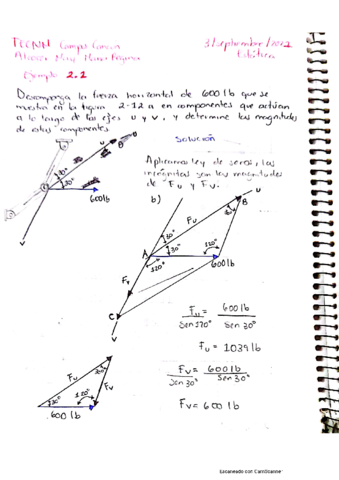 TECNM Campus Cancún
3/septiembre/2022
Estática
Ejemplo 2.2
Descomponga la fuerza horizontal de 600 lb que se
muestra en la figura 2-12 a en componentes que actúan
a lo largo de los ejes u y v, y determine las magnitudes
de estas componentes.
Solución
Aplicamos ley de senos, las
incógnitas son las magnitudes
de Fu y Fv.
u
B
30°
30°
600 lb
v
b)
u
B
Fu
30°
30°
30°
A
120°
120°
600 lb
Fv
C
v
Fu = 600 lb
Sen 120° Sen 30°
Fu = 1039 lb
Fv = 600 lb
Sen 30° Sen 30°
Fv = 600 lb
Fu
30°
Fv
30°
120°
600 lb
Escaneado con CamScanner